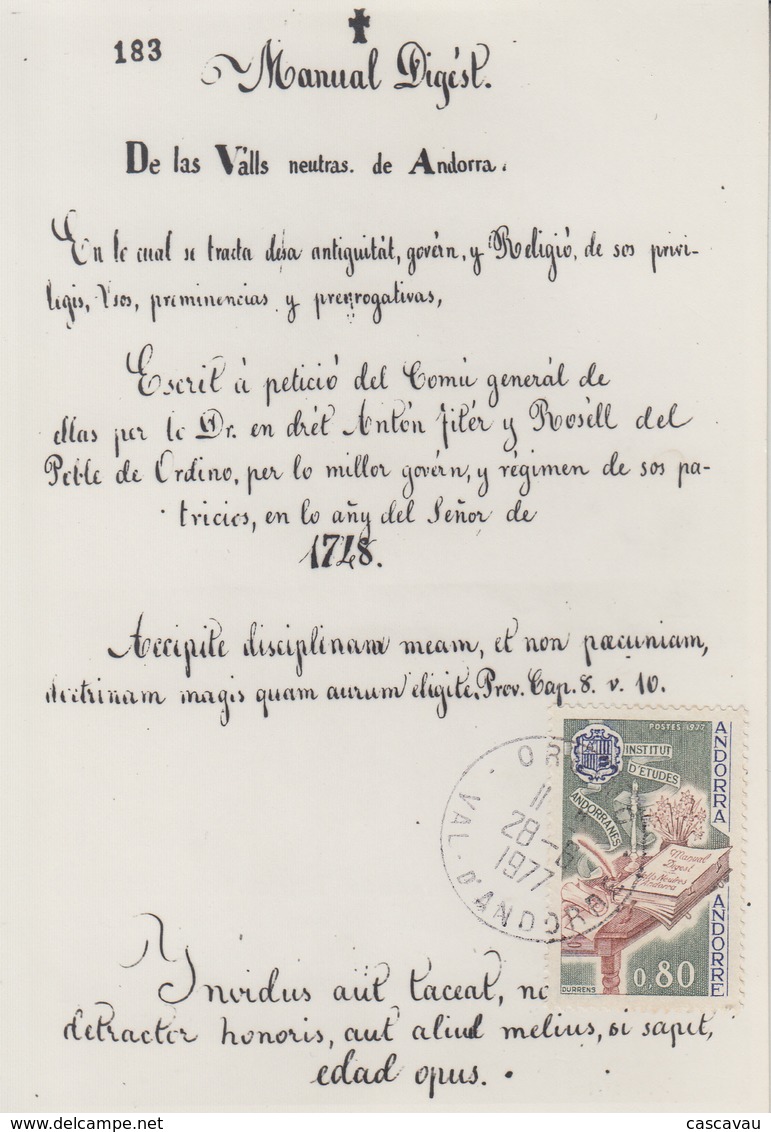 183
Manual Digést.
De las Válls neutras. de Andorra.
En lo cual se tracta desa antiguitát, govérn, y Religió, de sos privi-
legis, Usos, preminencias y prerrogativas,
Escrit á petició del Comú generál de
ellas per lo Dr. en drét Antón Fitér y Rosèll del
Poble de Ordino, per lo millor govérn, y régimen de sos pa-
tricios, en lo añy del Señor de
1748.
Accipite disciplinam meam, et non pœcuniam,
doctrinam magis quam aurum eligite. Prov. Cap. 8. v. 10.
POSTES 1977
INSTITUT
D'ETUDES
ANDORRANES
ANDORRA
ANDORRE
Manual
Digest
Valls Neutres
Andorra
0,80
DURRENS
11
28-
1977
VAL-D'ANDORRE
Invidus aut taceat,
detractor honoris, aut aliud melius, si sapit,
edad opus.
delcampe.net
cascavau